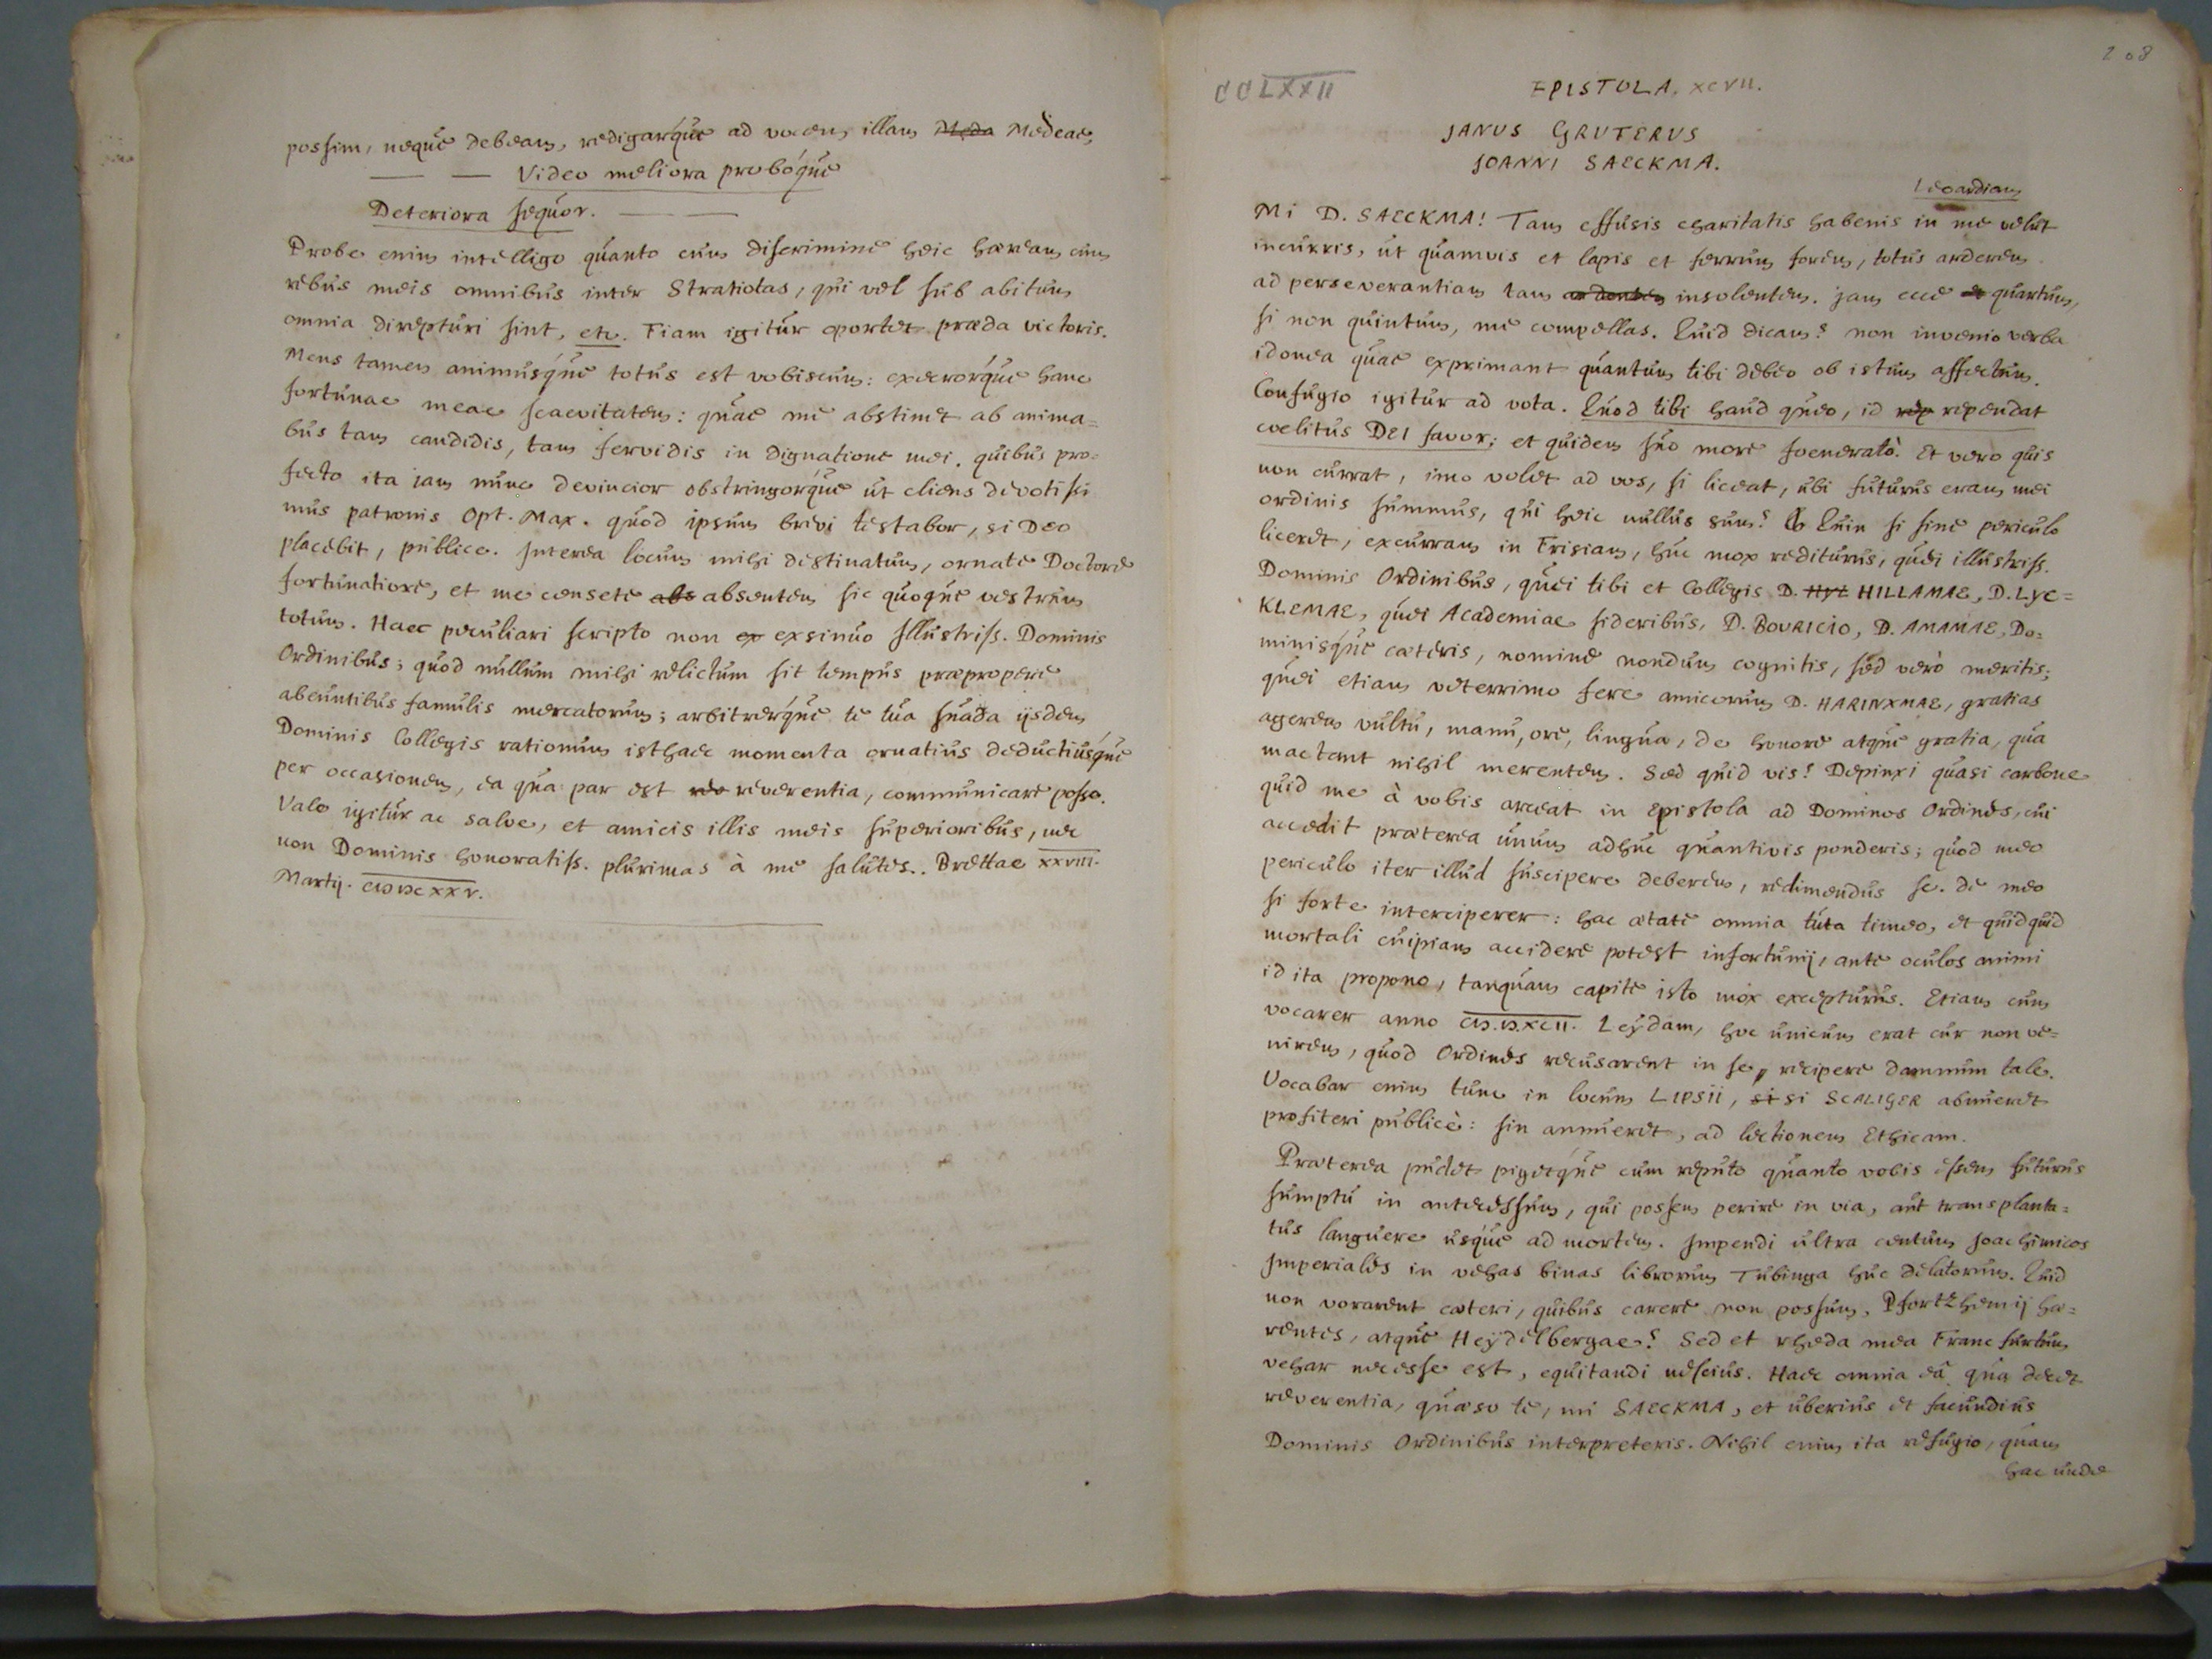 possim, neque debeam, redigarque ad vocem illam Meda Medeae,
— — Video meliora proboque
Deteriora sequor. — —
Probe enim intelligo quanto cum discrimine heic haeream cum
rebus meis omnibus inter Stratiotas, qui vel sub abitum
omnia direpturi sint, etc. Fiam igitur oportet praeda victoris.
Mens tamen animusque totus est vobiscum: exerorque hanc
fortunae meae scaevitatem: quae me abstinet ab anima=
bus tam candidis, tam fervidis in dignatione mei. quibus pro=
fecto ita jam nunc devincior obstringorque ut cliens devotissi
mus patronis Opt. Max. quod ipsum brevi testabor, si Deo
placebit, publice. Interea locum mihi destinatum, ornate Doctore
fortunatiore, et me censete abs absentem sic quoque vestrum
totum. Haec peculiari scripto non ex exsinuo Illustriss. Dominis
Ordinibus; quod nullum mihi relictum sit tempus praepropere
abeuntibus famulis mercatorum; arbitrerque te tua suada ijsdem
Dominis Collegis rationum isthaec momenta ornatius deductiusque
per occasionem, ea qua par est reverentia, communicare posse.
Vale igitur ac salve, et amicis illis meis superioribus, nec
non Dominis honoratiss. plurimas à me salutes.. Brettae XXVIII.
Martij. CIↃIↃCXXV.
208
CCLXXII
EPISTOLA, XCVII.
JANUS GRUTERUS
JOANNI SAECKMA.
Leoardiam
Mi D. SAECKMA! Tam effusis charitatis habenis in me velut
incurris, ut quamvis et lapis et ferrum forem, totus arderem
ad perseverantiam tam ardentem insolentem. jam ecce quartum,
si non quintum, me compellas. Quid dicam? non invenio verba
idonea quae exprimant quantum tibi debeo ob istum affectum.
Confugio igitur ad vota. Quod tibi haud queo, id rep rependat
coelitus DEI favor; et quidem suo more foenerato. Et vero quis
non currat, imo volet ad vos, si liceat, ubi futurus eram mei
ordinis summus, qui heic nullus sum? Quin si sine periculo
liceret, excurram in Frisiam, huc mox rediturus, quei illustriss.
Dominis Ordinibus, quei tibi et Collegis D. Hyl HILLAMAE, D. LYC=
KLEMAE, quei Academiae sideribus, D. BOURICIO, D. AMAMAE, Do=
minisque caeteris, nomine nondum cognitis, sed verò meritis;
quei etiam veterrimo fere amicorum D. HARINXMAE, gratias
agerem vultu, manu, ore, lingua, de honore atque gratia, qua
mactant nihil merentem. Sed quid vis? Depinxi quasi carbone
quid me à vobis arceat in Epistola ad Dominos Ordines, cui
accedit praeterea unum adhuc quantivis ponderis; quod meo
periculo iter illud suscipere deberem, redimendus sc. de meo
si forte interciperer: hac aetate omnia tuta timeo, et quidquid
mortali cuipiam accidere potest infortunij, ante oculos animi
id ita propono, tanquam capite isto mox excepturus. Etiam cum
vocarer anno CIↃ.IↃ.XCII. Leydam, hoc unicum erat cur non ve=
nirem, quod Ordines recusarent in se recipere damnum tale.
Vocabar enim tunc in locum LIPSII, si si SCALIGER abnueret
profiteri publicè: sin annueret, ad lectionem Ethicam.
Praeterea pudet pigetque cum reputo quanto vobis essem futurus
sumptu in antecessum, qui possem perire in via, aut transplanta=
tus languere usque ad mortem. Impendi ultra centum Joachimicos
Imperiales in vehas binas librorum Tubinga huc delatorum. Quid
non vorarent caeteri, quibus carere non possum, Pfortzhemij hae=
rentes, atque Heydelbergae? Sed et rheda mea Francfurtum
vehar necesse est, equitandi nescius. Haec omnia eâ qua decet
reverentia, quaeso te, mi SAECKMA, et uberius et facundius
Dominis Ordinibus interpreteris. Nihil enim ita refugio, quam
hac unde